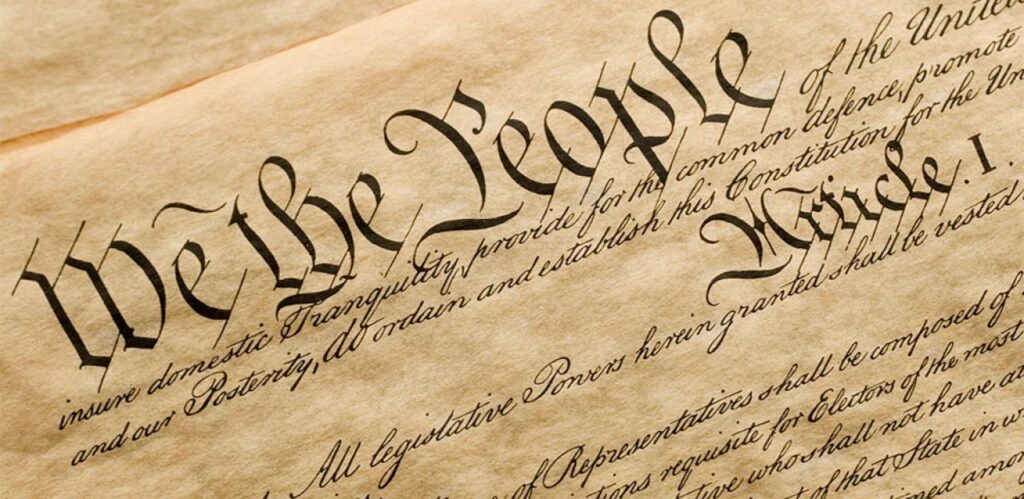 We the People of the United
insure domestic Tranquility, provide for the common defence, promote
and our Posterity, do ordain and establish this Constitution for the Un
Article. I.
All legislative Powers herein granted shall be vested
of Representatives shall be composed of
tions requisite for Electors of the most
tive who shall not have
of that State in w